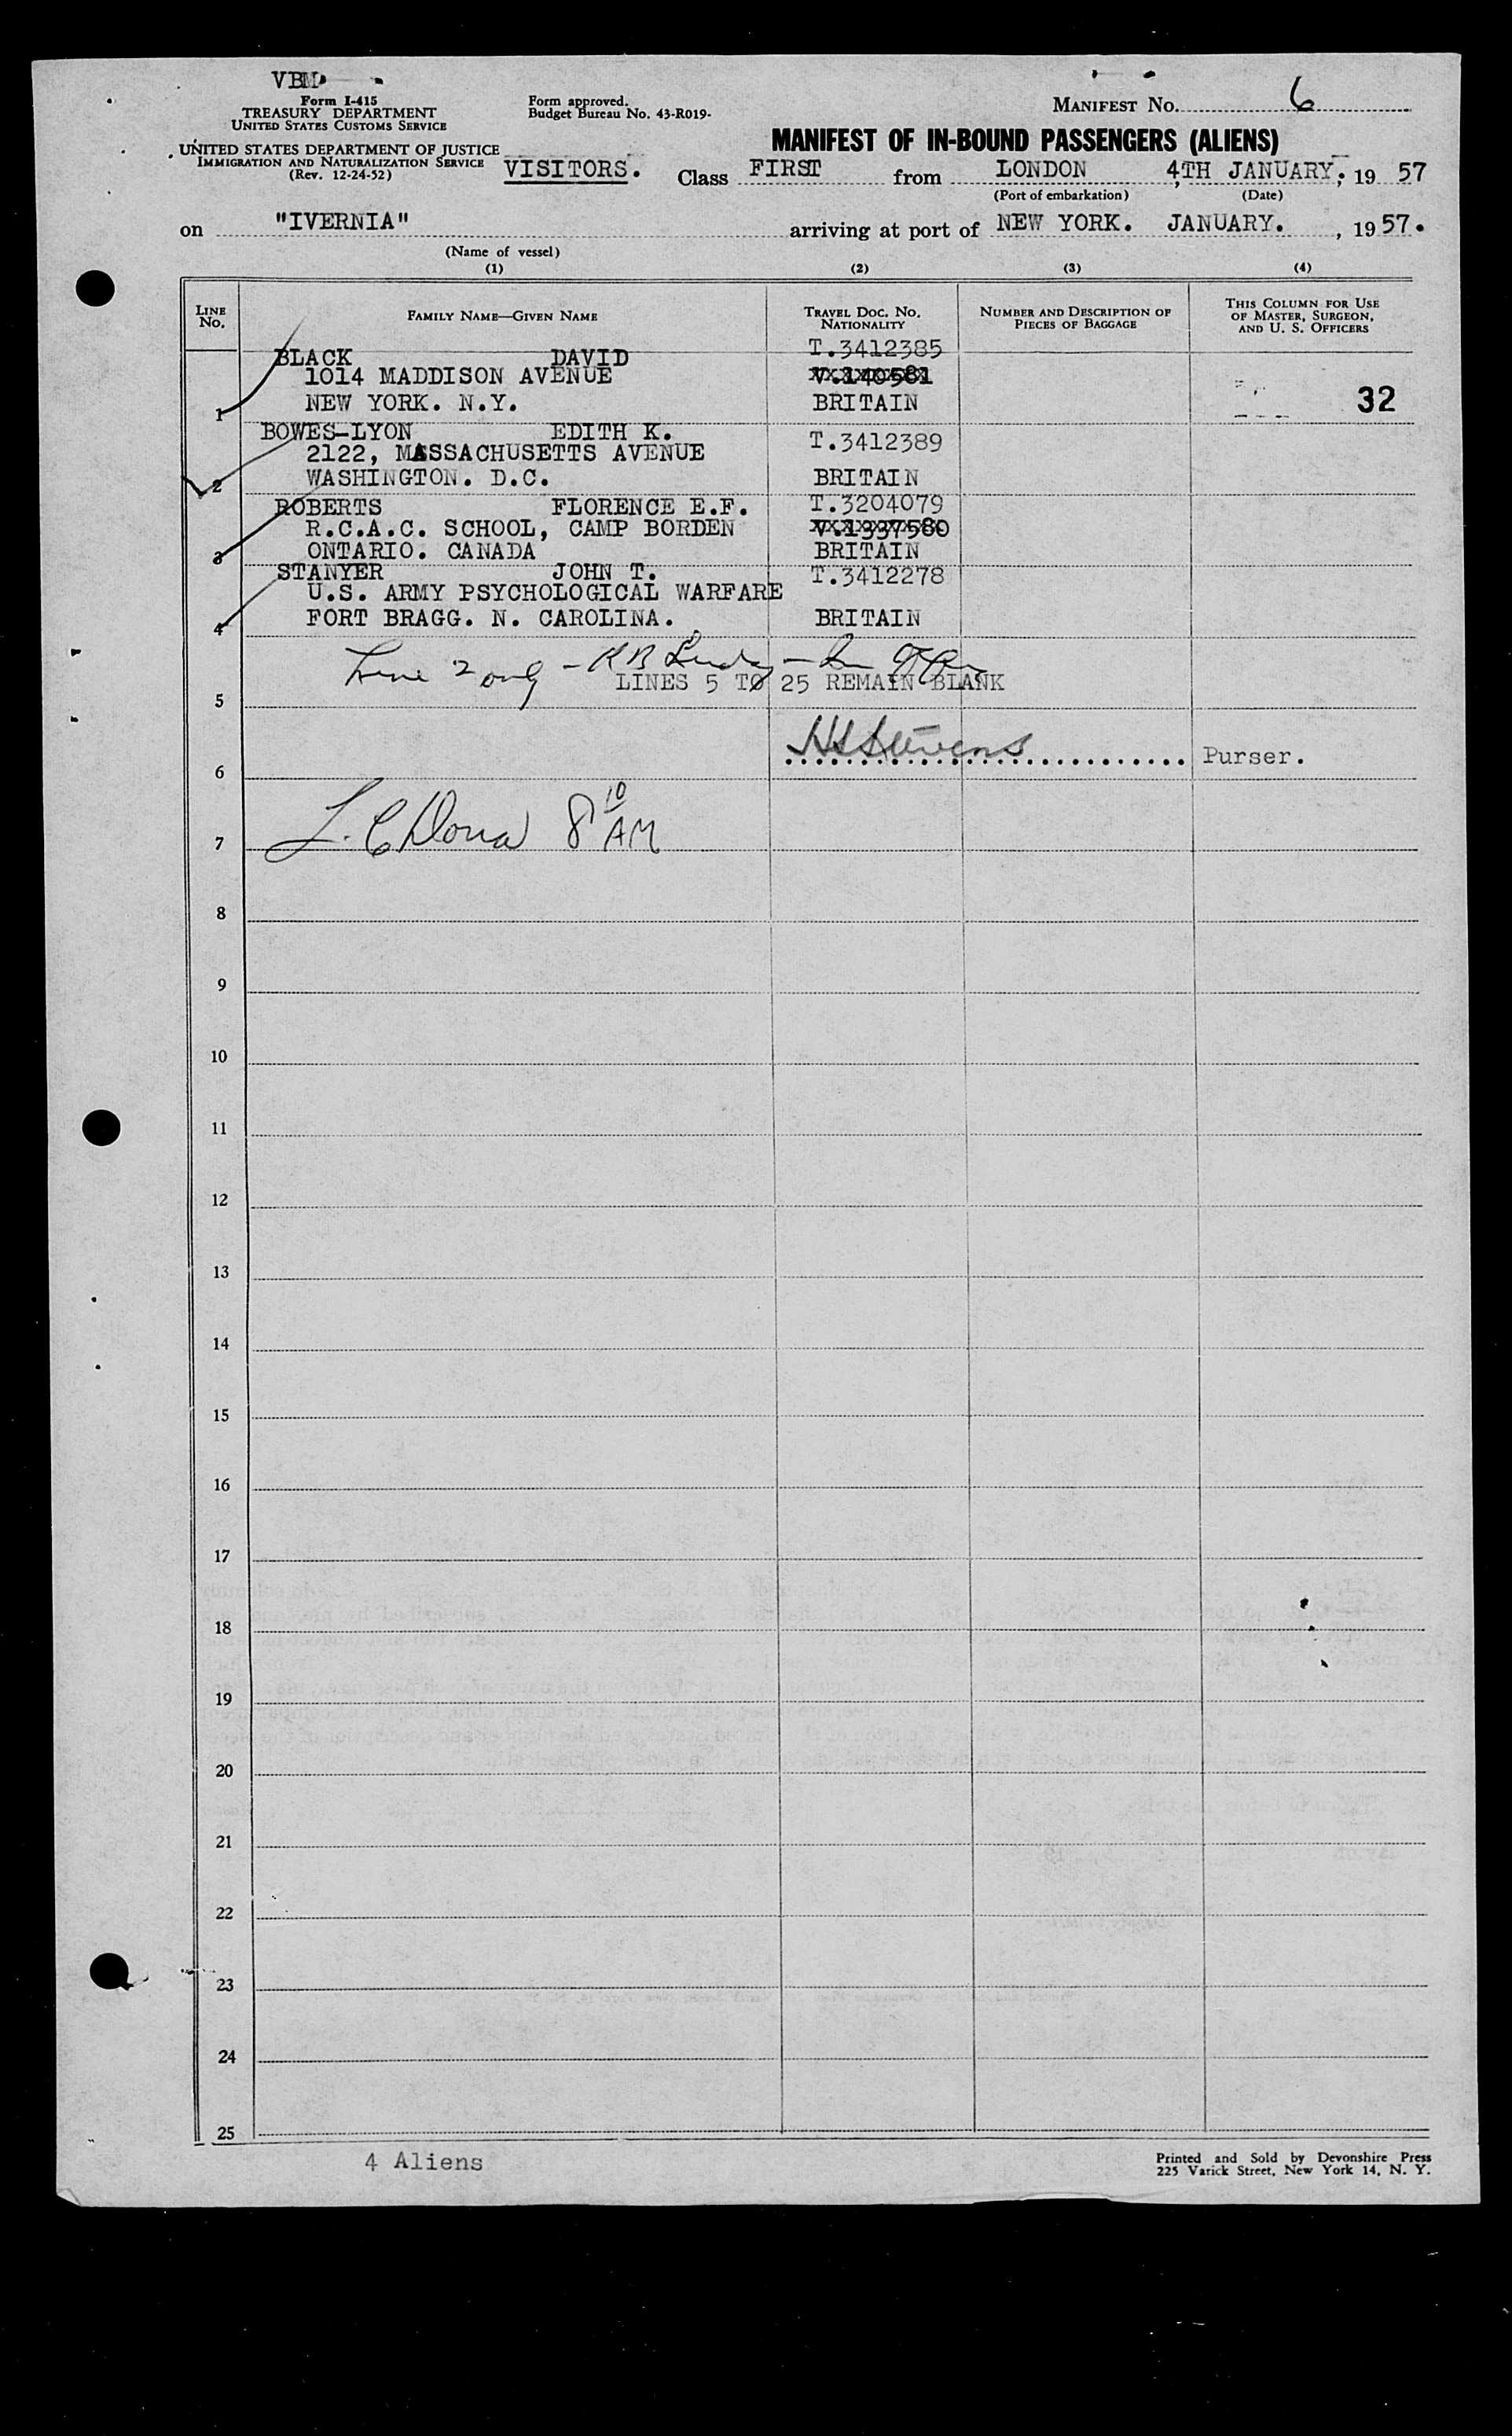 VBM
Form I-415
TREASURY DEPARTMENT
UNITED STATES CUSTOMS SERVICE
UNITED STATES DEPARTMENT OF JUSTICE
IMMIGRATION AND NATURALIZATION SERVICE
(Rev. 12-24-52)
Form approved.
Budget Bureau No. 43-R019-
MANIFEST NO. 6
MANIFEST OF IN-BOUND PASSENGERS (ALIENS)
VISITORS. Class FIRST from LONDON 4TH JANUARY, 19 57
(Port of embarkation) (Date)
on "IVERNIA" arriving at port of NEW YORK. JANUARY. , 19 57.
(Name of vessel)
(1) (2) (3) (4)
LINE NO. FAMILY NAME—GIVEN NAME TRAVEL DOC. NO. NATIONALITY NUMBER AND DESCRIPTION OF PIECES OF BAGGAGE THIS COLUMN FOR USE OF MASTER, SURGEON, AND U. S. OFFICERS
BLACK DAVID T.3412385
1014 MADDISON AVENUE V.140581
1 NEW YORK. N.Y. BRITAIN 32
BOWES-LYON EDITH K. T.3412389
2122, MASSACHUSETTS AVENUE
2 WASHINGTON. D.C. BRITAIN
ROBERTS FLORENCE E.F. T.3204079
R.C.A.C. SCHOOL, CAMP BORDEN V.1337580
3 ONTARIO. CANADA BRITAIN
STANYER JOHN T. T.3412278
U.S. ARMY PSYCHOLOGICAL WARFARE
4 FORT BRAGG. N. CAROLINA. BRITAIN
Line 2 only -
LINES 5 TO 25 REMAIN BLANK
5
HStevens Purser.
6
7 8 10 AM
8
9
10
11
12
13
14
15
16
17
18
19
20
21
22
23
24
25
4 Aliens
Printed and Sold by Devonshire Press
225 Varick Street, New York 14, N. Y.